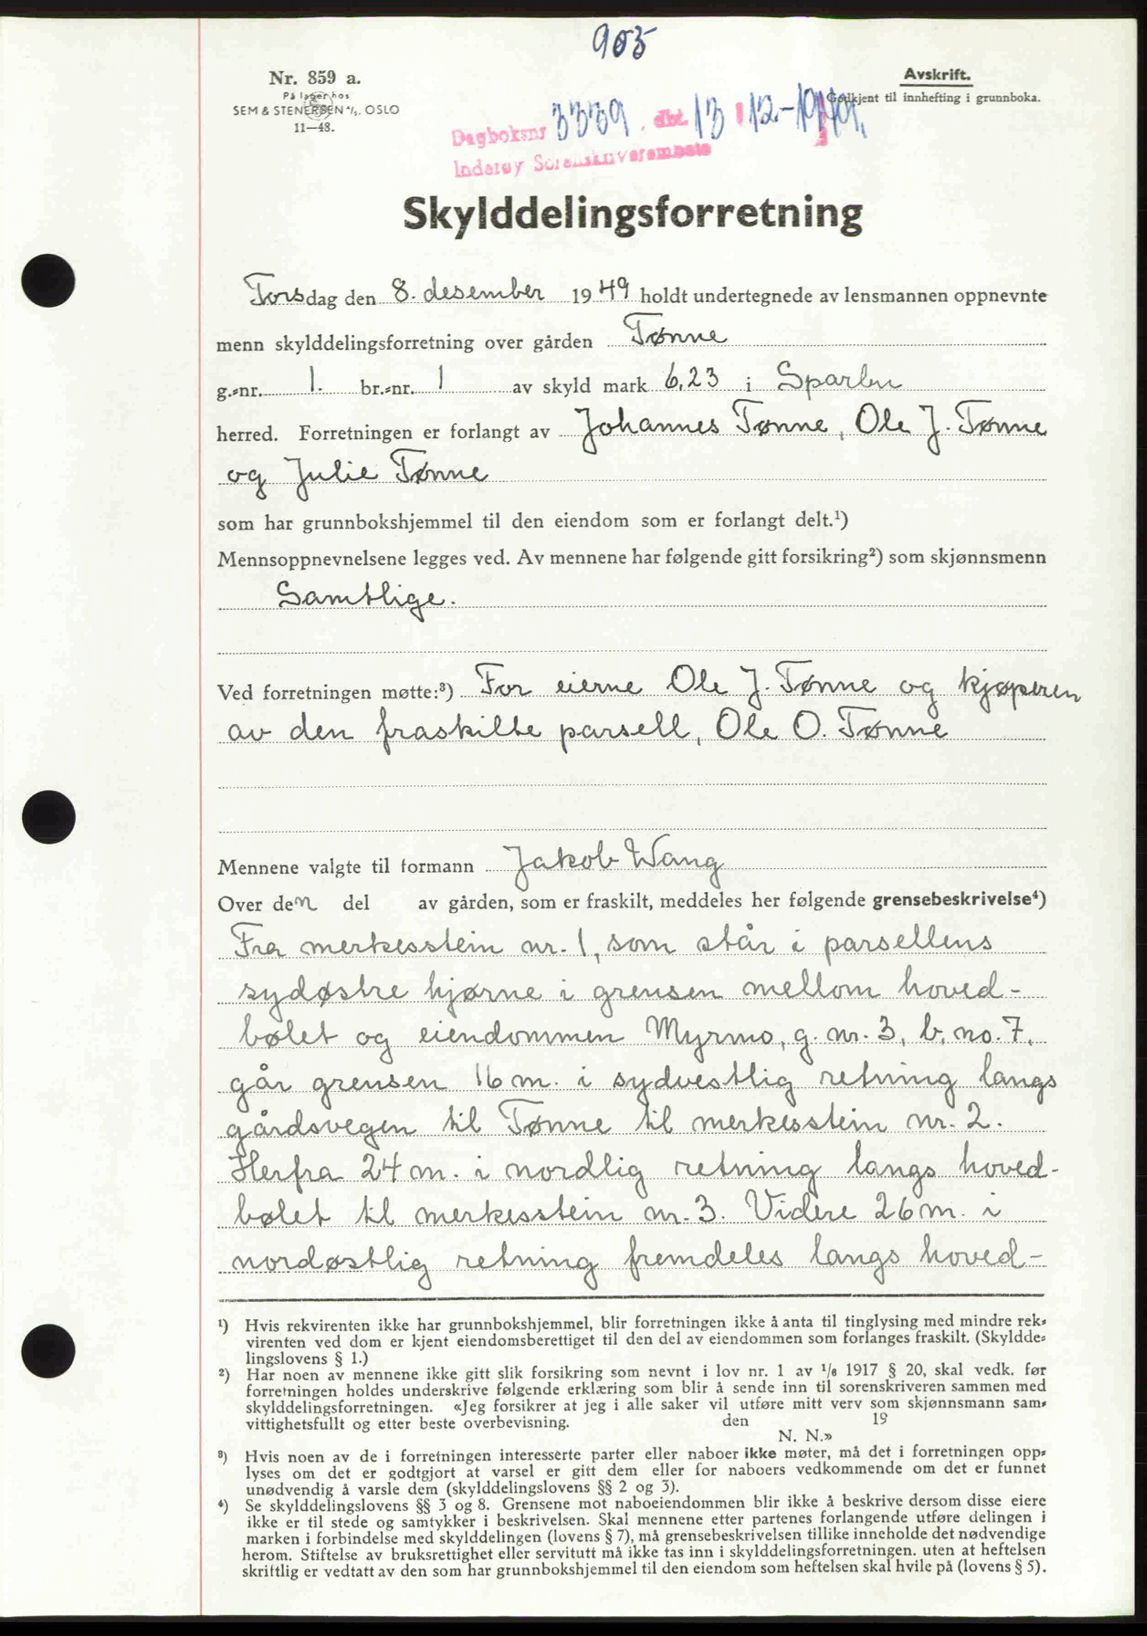 905
Nr. 859 a.
På lager hos
SEM & STENERSEN A/S, OSLO
11—48.
Avskrift.
Godkjent til innhefting i grunnboka.
Dagboksnr 3339, dbt. 13/12-1949.
Inderøy Sorenskriverembete
Skylddelingsforretning
Torsdag den 8. desember 1949 holdt undertegnede av lensmannen oppnevnte
menn skylddelingsforretning over gården Tønne
g.-nr. 1. br.-nr. 1 av skyld mark 6,23 i Sparbu
herred. Forretningen er forlangt av Johannes Tønne, Ole J. Tønne
og Julie Tønne
som har grunnbokshjemmel til den eiendom som er forlangt delt.¹)
Mennsoppnevnelsene legges ved. Av mennene har følgende gitt forsikring²) som skjønnsmenn
Samtlige.
Ved forretningen møtte:³) For eierne Ole J. Tønne og kjøperen
av den fraskilte parsell, Ole O. Tønne
Mennene valgte til formann Jakob Wang
Over den del av gården, som er fraskilt, meddeles her følgende grensebeskrivelse⁴)
Fra merkesstein nr. 1, som står i parsellens
sydøstre hjørne i grensen mellom hoved-
bølet og eiendommen Myrmo, g. nr. 3, b. no. 7,
går grensen 16 m. i sydvestlig retning langs
gårdsvegen til Tønne til merkesstein nr. 2.
Herfra 24 m. i nordlig retning langs hoved-
bølet til merkesstein nr. 3. Videre 26 m. i
nordøstlig retning fremdeles langs hoved-
¹) Hvis rekvirenten ikke har grunnbokshjemmel, blir forretningen ikke å anta til tinglysing med mindre rek-
virenten ved dom er kjent eiendomsberettiget til den del av eiendommen som forlanges fraskilt. (Skyldde-
lingslovens § 1.)
²) Har noen av mennene ikke gitt slik forsikring som nevnt i lov nr. 1 av 1/6 1917 § 20, skal vedk. før
forretningen holdes underskrive følgende erklæring som blir å sende inn til sorenskriveren sammen med
skylddelingsforretningen. «Jeg forsikrer at jeg i alle saker vil utføre mitt verv som skjønnsmann sam-
vittighetsfullt og etter beste overbevisning. den 19
N. N.»
³) Hvis noen av de i forretningen interesserte parter eller naboer ikke møter, må det i forretningen opp-
lyses om det er godtgjort at varsel er gitt dem eller for naboers vedkommende om det er funnet
unødvendig å varsle dem (skylddelingslovens §§ 2 og 3).
⁴) Se skylddelingslovens §§ 3 og 8. Grensene mot naboeiendommen blir ikke å beskrive dersom disse eiere
ikke er til stede og samtykker i beskrivelsen. Skal mennene etter partenes forlangende utføre delingen i
marken i forbindelse med skylddelingen (lovens § 7), må grensebeskrivelsen tillike inneholde det nødvendige
herom. Stiftelse av bruksrettighet eller servitutt må ikke tas inn i skylddelingsforretningen. uten at heftelsen
skriftlig er vedtatt av den som har grunnbokshjemmel til den eiendom som heftelsen skal hvile på (lovens § 5).